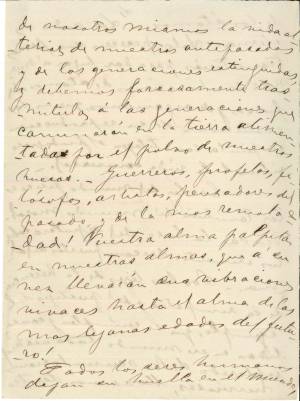 de nosotros miramos la vida al
terior de nuestros antepasados
y de las generaciones extinguidas,
y debemos forzosamente tras-
mitirla á las generaciones que
caminarán en la tierra alimen-
tadas por el polvo de nuestros
huesos.- Guerreros, profetas, fi-
lósofos, artistas, pensadores del
pasado y de la más remota e-
dad! Vuestra alma palpita
en nuestras almas, que á su
vez llevarán sus vibraciones
vivaces hasta el alma de las
mas lejanas edades del futu-
ro!
Todos los seres humanos
dejan su huella en el mundo,